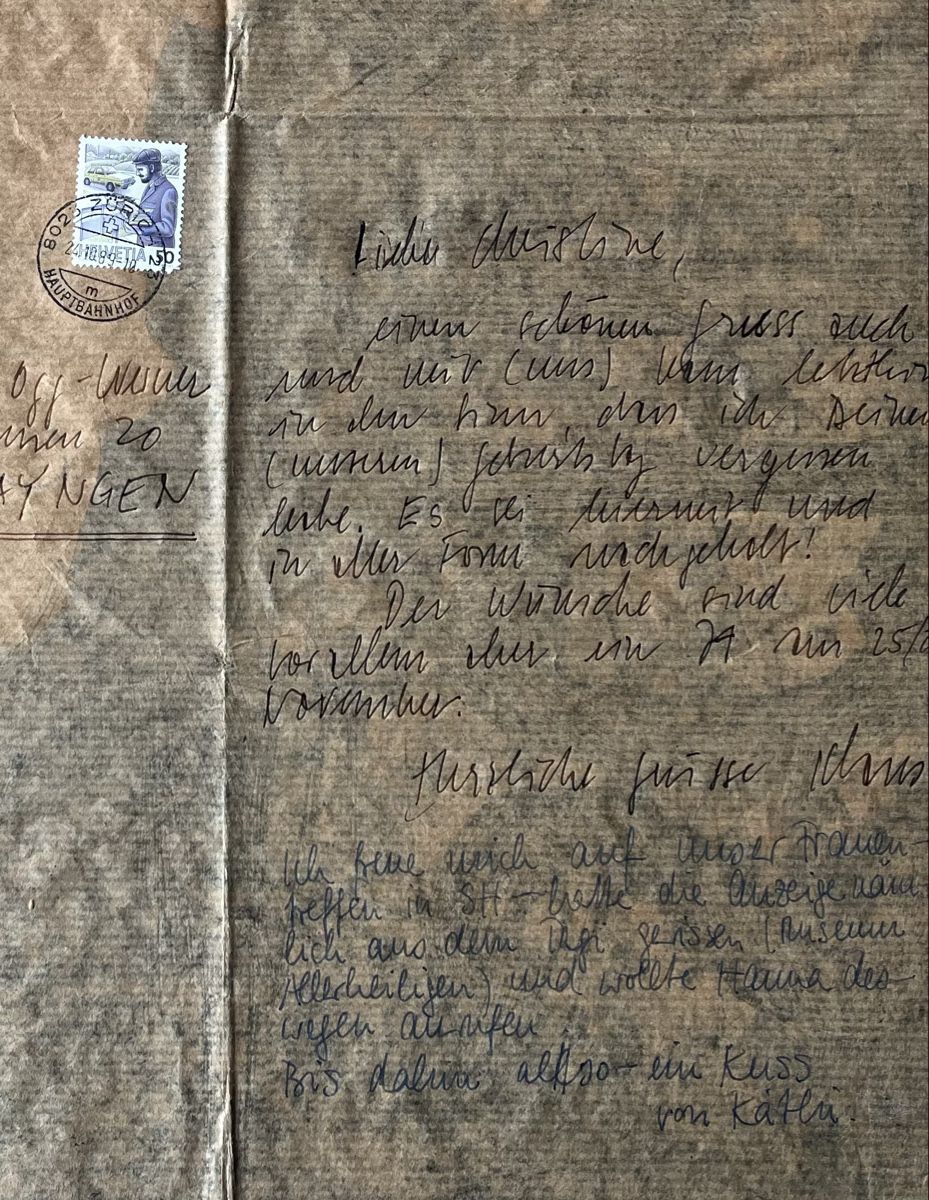 8023 ZÜRICH 23
24.10.89-18
HAUPTBAHNHOF
HELVETIA 50
Ogg-Werner
nen 20
AYNGEN
Liebe Christine,
einen schönen Gruss auch
und mir (uns) kam letzthin
in den Sinn, dass ich Deinen
(unseren) Geburtstag vergessen
habe. Es sei hiermit und
in aller Form nachgeholt!
Der Wünsche sind viele
vor allem aber ein JA am 25/2
November.
Herzliche Grüsse
Ich freue mich auf unser Frauen-
treffen in SH - hatte die Anzeige näm-
lich aus dem Tagi gerissen (Museum
Allerheiligen) und wollte Hanna des-
wegen anrufen.
Bis dahin also - ein Kuss
von Käthi.